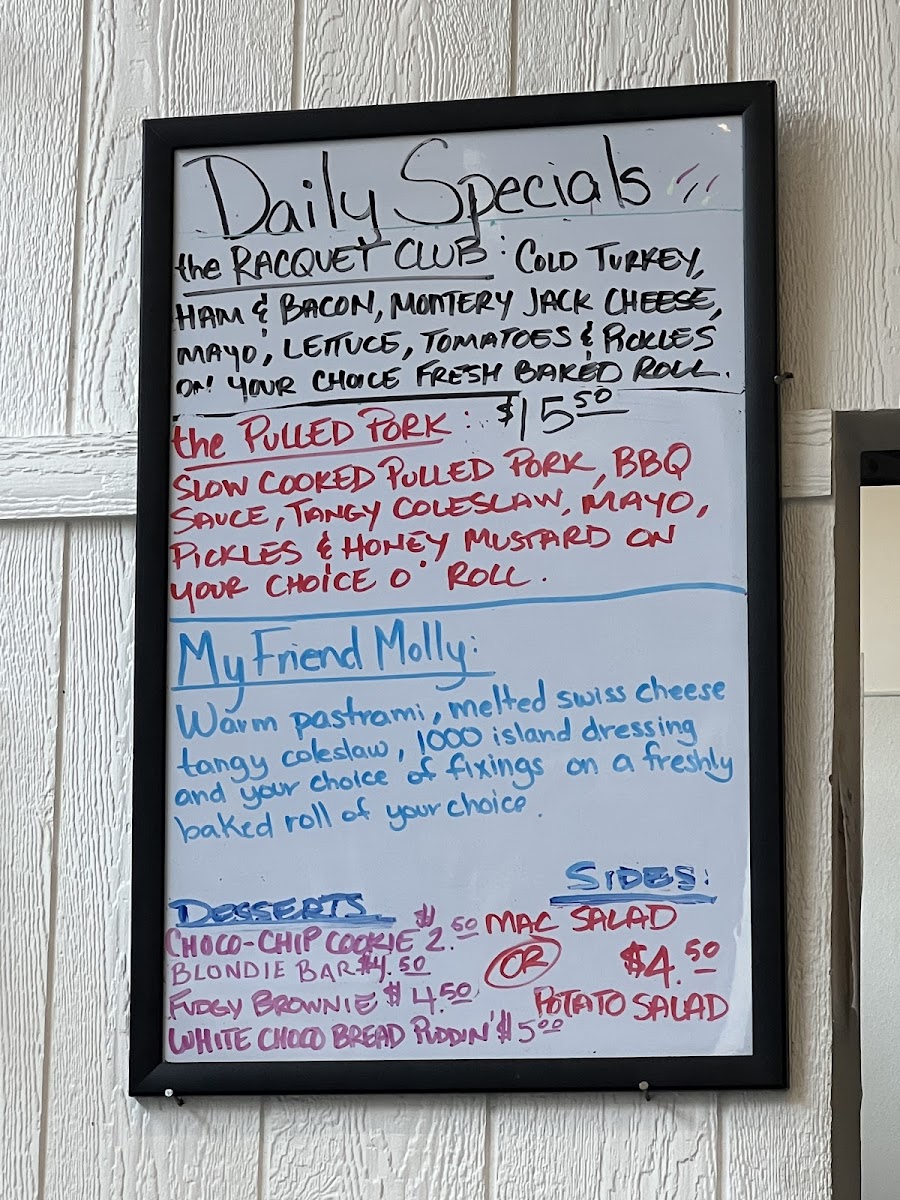 Daily Specials
the RACQUET CLUB: COLD TURKEY,
HAM & BACON, MONTERY JACK CHEESE,
MAYO, LETTUCE, TOMATOES & PICKLES
ON YOUR CHOICE FRESH BAKED ROLL.
$15.50
the PULLED PORK:
SLOW COOKED PULLED PORK, BBQ
SAUCE, TANGY COLESLAW, MAYO,
PICKLES & HONEY MUSTARD ON
YOUR CHOICE O' ROLL.
My Friend Molly:
Warm pastrami, melted swiss cheese
tangy coleslaw, 1000 island dressing
and your choice of fixings on a freshly
baked roll of your choice.
DESSERTS
CHOCO-CHIP COOKIE $2.50
BLONDIE BAR $4.50
FUDGY BROWNIE $4.50
WHITE CHOCO BREAD PUDDIN' $5.00
SIDES:
MAC SALAD
OR
$4.50
POTATO SALAD